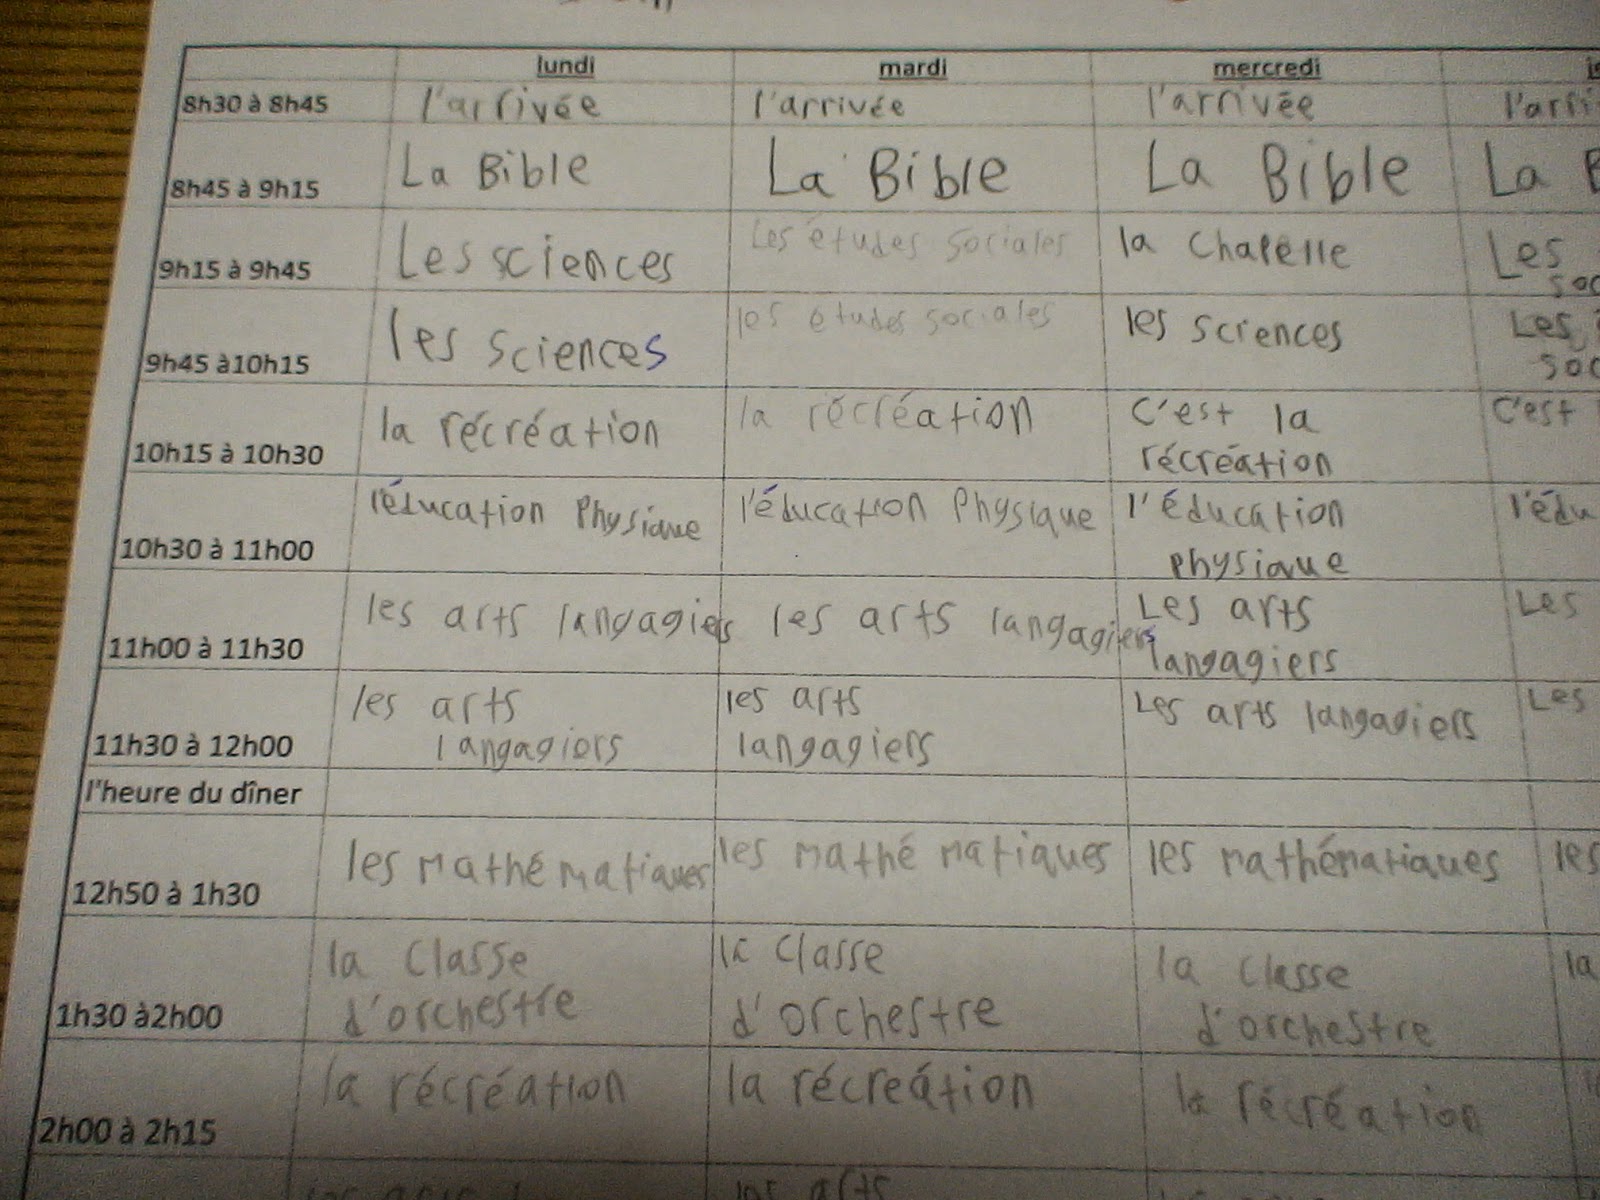 lundi mardi mercredi
8h30 à 8h45 l'arrivée l'arrivée l'arrivée l'arri
8h45 à 9h15 La Bible La Bible La Bible La B
9h15 à 9h45 Les sciences Les études sociales la Chapelle Les
soc
9h45 à10h15 les sciences les études sociales les sciences Les
soc
10h15 à 10h30 la récréation la récréation C'est la C'est
récréation
10h30 à 11h00 l'éducation Physique l'éducation Physique l'éducation l'édu
physique
11h00 à 11h30 les arts langagiers les arts langagiers Les arts Les
langagiers
11h30 à 12h00 les arts les arts Les arts langagiers Les
langagiers langagiers
l'heure du dîner
12h50 à 1h30 les mathématiques les mathématiques les mathématiques les
1h30 à2h00 la Classe la Classe la Classe la
d'orchestre d'orchestre d'orchestre
2h00 à 2h15 la récréation la récreátion la récréation
les arts